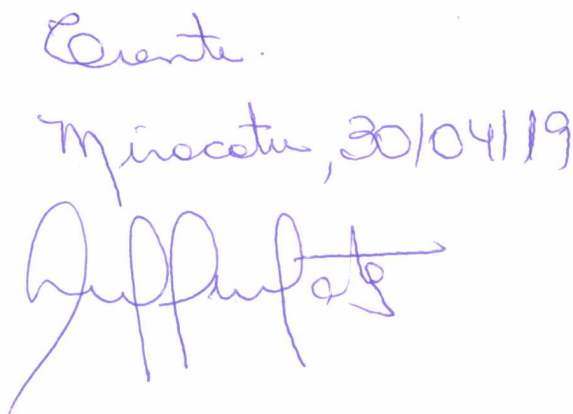 Ciente.
Miracatu, 30/04/19